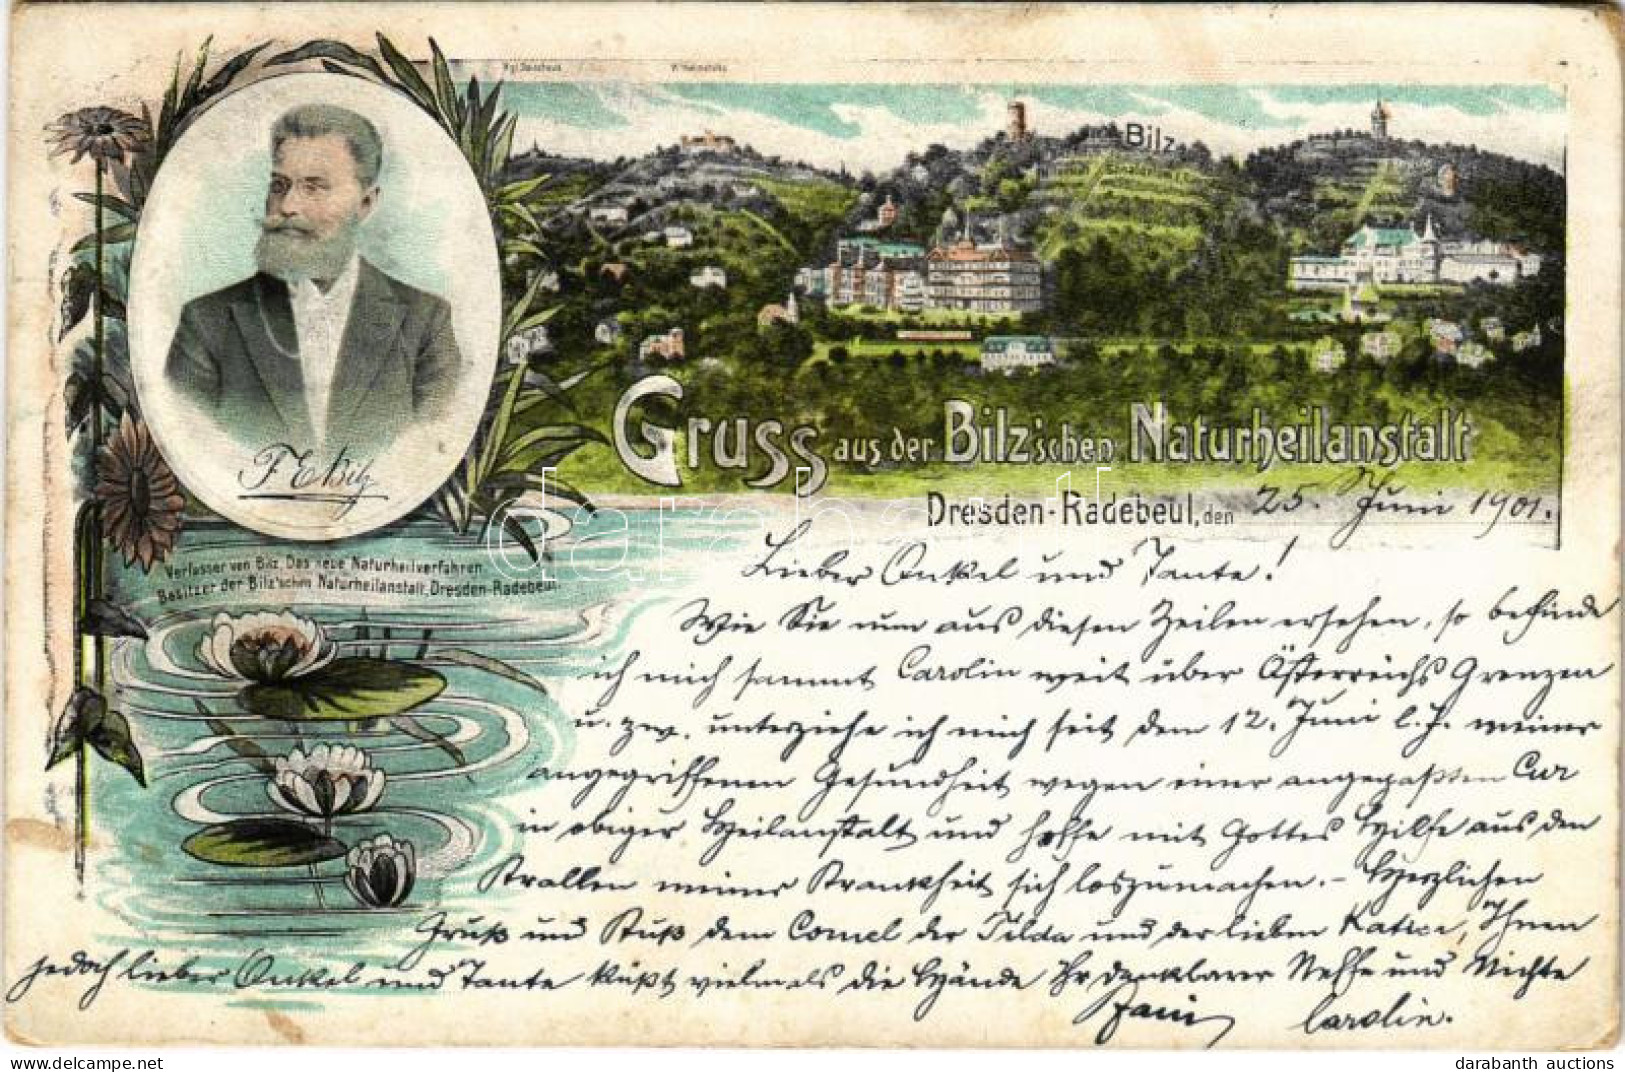 Kgl. Spitzhaus
Bilz
F. E. Bilz
Gruss aus der Bilz'schen Naturheilanstalt
Dresden-Radebeul, den 25. Juni 1901.
Verfasser von Bilz, Das neue Naturheilverfahren
Besitzer der Bilz'schen Naturheilanstalt, Dresden-Radebeul.
Lieber Onkel und Tante!
Wie Sie nun aus diesen Zeilen ersehen, so befinde
ich mich sammt Carolin weit über Österreichs Grenzen
u. zw. unterziehe ich mich seit dem 12. Juni l. J. meiner
angegriffenen Gesundheit wegen einer angepaßten Cur
in obiger Heilanstalt und hoffe mit Gottes Hilfe aus den
Krallen meiner Krankheit sich loszumachen. - Herzlichen
Gruß und Kuß dem Cornel der Tilda und der lieben Ihnen
jedoch lieber Onkel und Tante küßt vielmals die Hände Ihr dankbarer Neffe und Nichte
Carolin.
darabanth
darabanth auctions